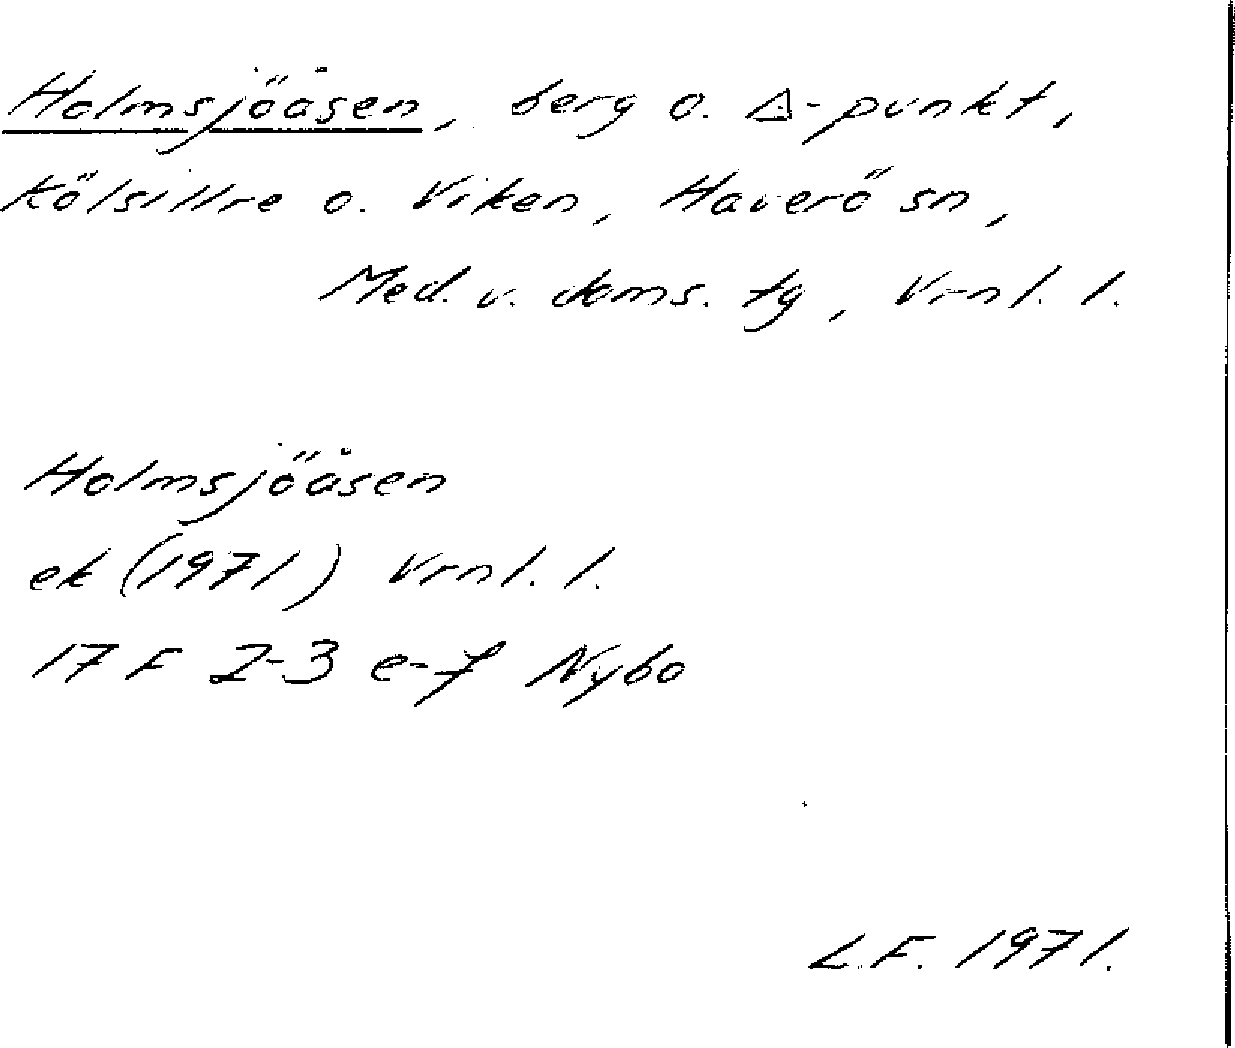 Holmsjöåsen, berg o. Δ-punkt,
Kölsillre o. Viken, Haverö sn,
Med. v. doms. tg, Vrnl. l.
Holmsjöåsen
ek (1971) Vrnl. l.
17 F 2-3 e-f Nybo
L.F. 1971.